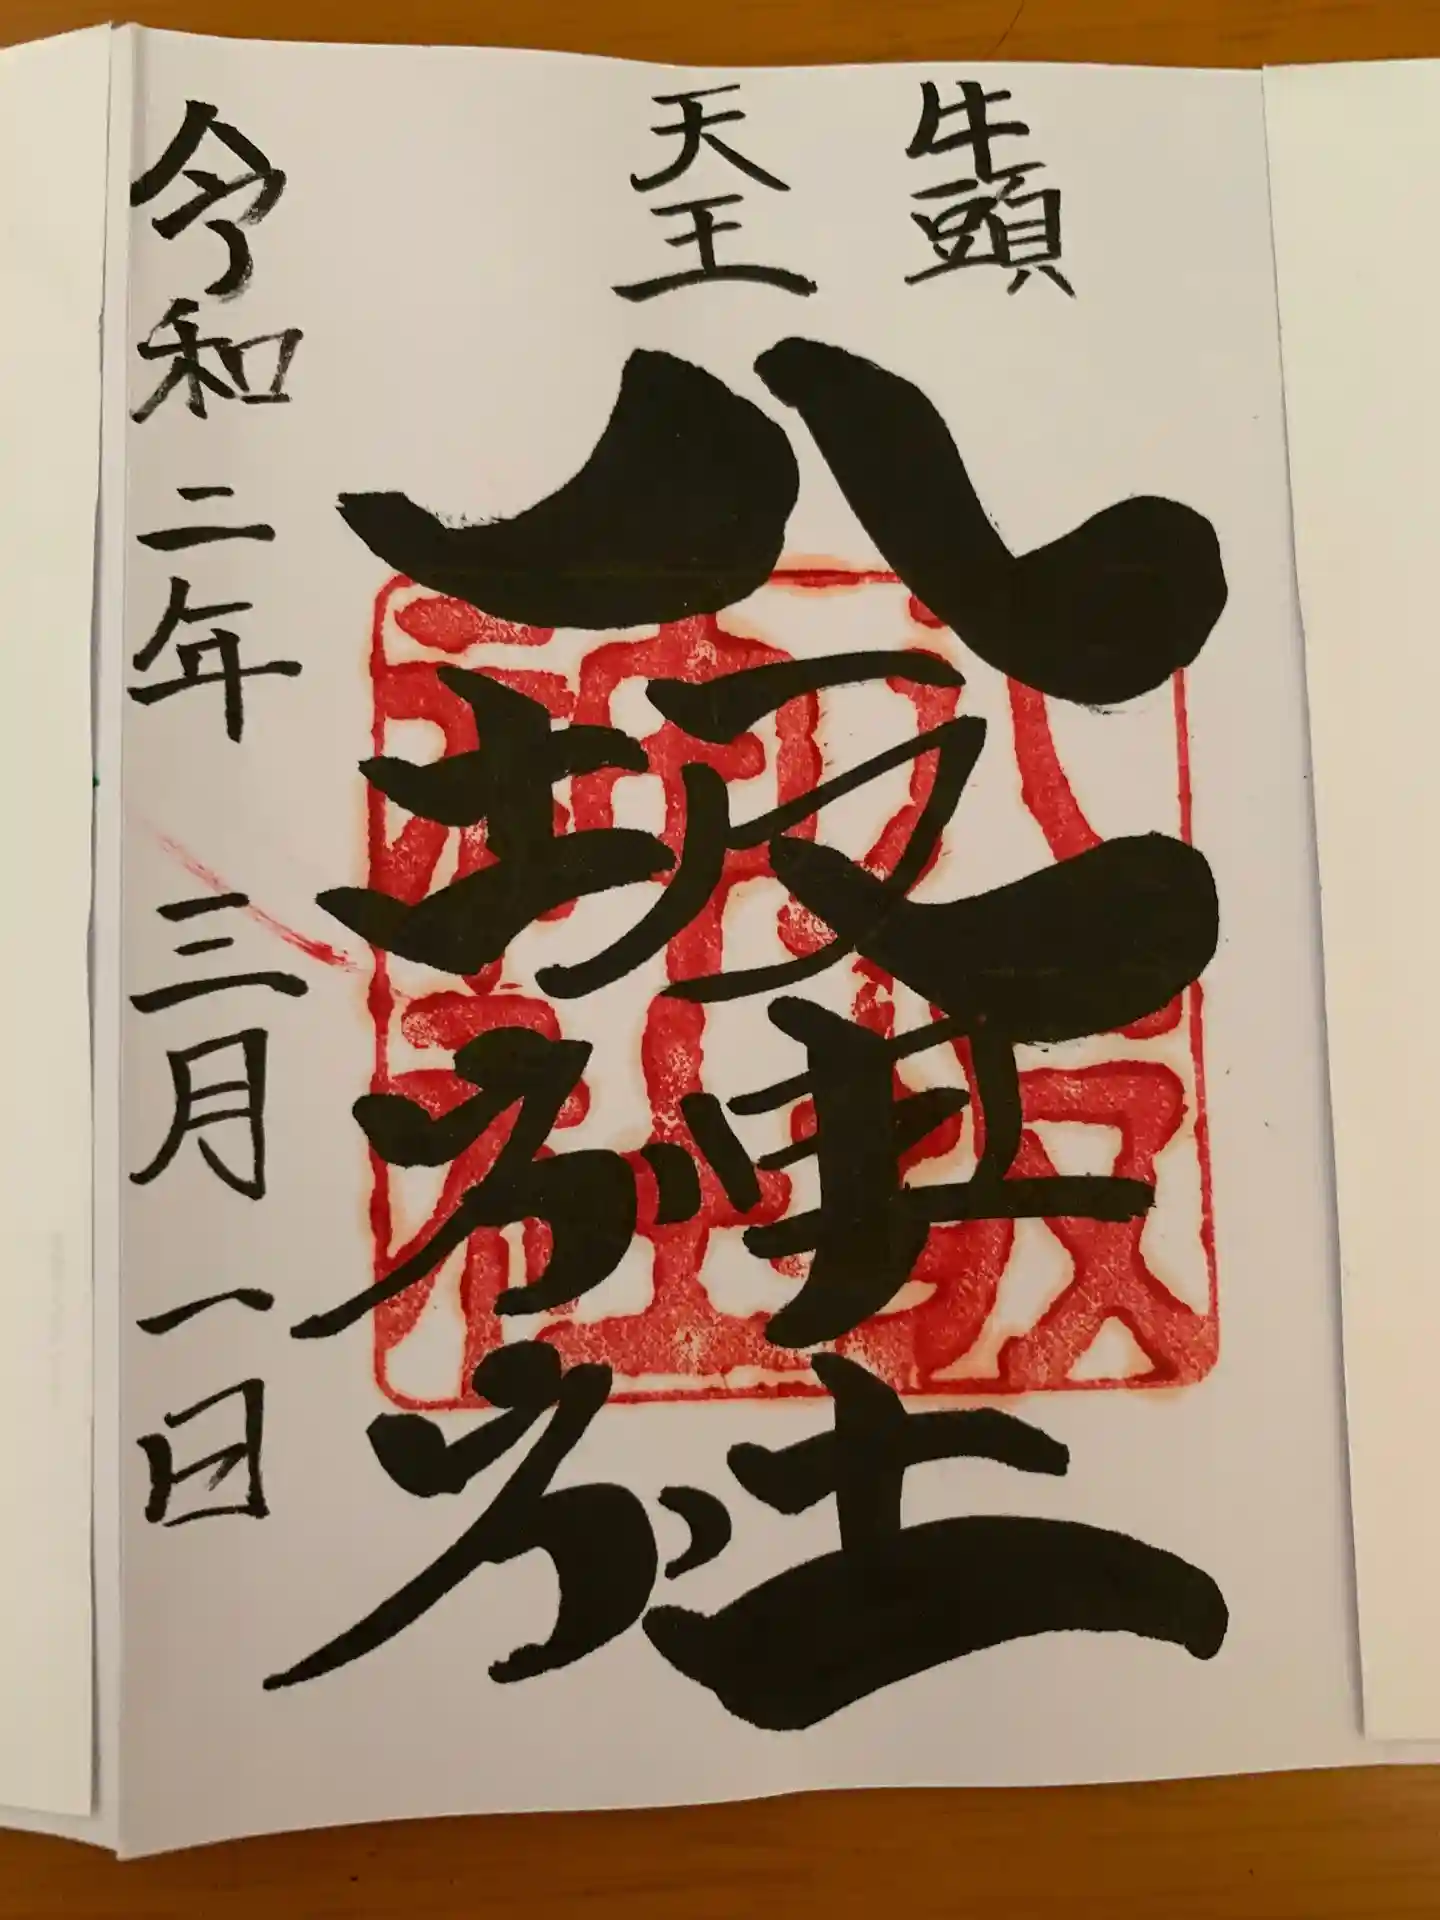 牛頭
天王
八坂神社
令和二年三月一日